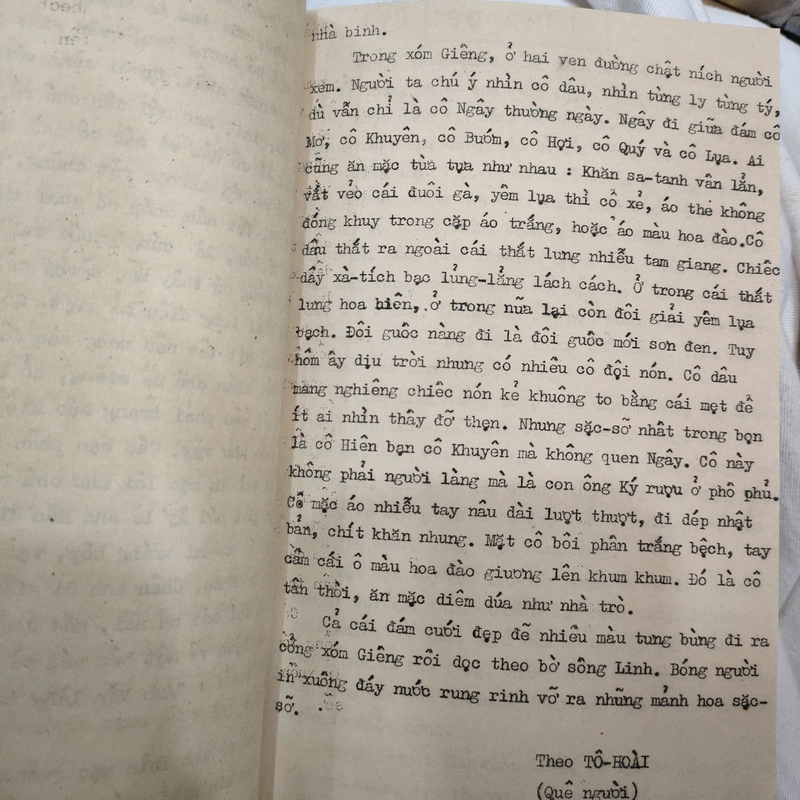 nhà binh.
Trong xóm Giêng, ở hai ven đường chật ních người
xem. Người ta chú ý nhìn cô dâu, nhìn từng ly từng tý,
dù vẫn chỉ là cô Ngây thường ngày. Ngây đi giữa đám cô
Mơ, cô Khuyên, cô Bướm, cô Hợi, cô Quý và cô Lụa. Ai
cũng ăn mặc tùa tựa như nhau : Khăn sa-tanh vấn lẳn,
vắt vẻo cái đuôi gà, yếm lụa thì cổ xẻ, áo the không
đóng khuy trong cặp áo trắng, hoặc áo màu hoa đào.Cô
dâu thắt ra ngoài cái thắt lưng nhiễu tam giang. Chiếc
dây xà-tích bạc lủng-lẳng lách cách. Ở trong cái thắt
lưng hoa hiên, ở trong nữa lại còn đôi giải yếm lụa
bạch. Đôi guốc nàng đi là đôi guốc mới sơn đen. Tuy
hôm ấy dịu trời nhưng có nhiều cô đội nón. Cô dâu
mang nghiêng chiếc nón kẻ khuông to bằng cái mẹt để
ít ai nhìn thấy đỡ thẹn. Nhưng sặc-sỡ nhất trong bọn
là cô Hiên bạn cô Khuyên mà không quen Ngây. Cô này
không phải người làng mà là con ông Ký rượu ở phố phủ.
Cô mặc áo nhiễu tay nâu dài lượt thượt, đi dép nhật
bản, chít khăn nhung. Mặt cô bôi phấn trắng bệch, tay
cầm cái ô màu hoa đào giương lên khum khum. Đó là cô
tân thời, ăn mặc diêm dúa như nhà trò.
Cả cái đám cưới đẹp đẽ nhiều màu tưng bừng đi ra
cổng xóm Giêng rồi dọc theo bờ sông Linh. Bóng người
in xuống đáy nước rung rinh vỡ ra những mảnh hoa sặc-
sỡ.
Theo TÔ-HOÀI
(Quê người)